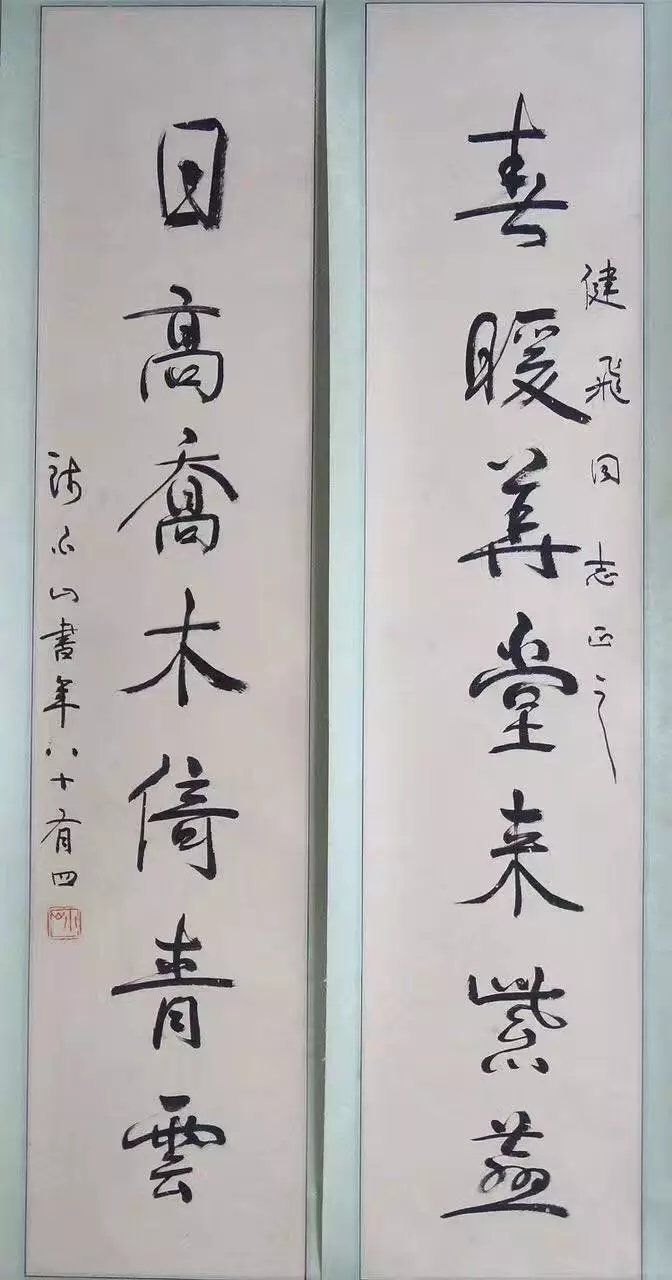 春暖華堂来紫燕
健飛同志正之
日高喬木倚青雲
山書年八十有四